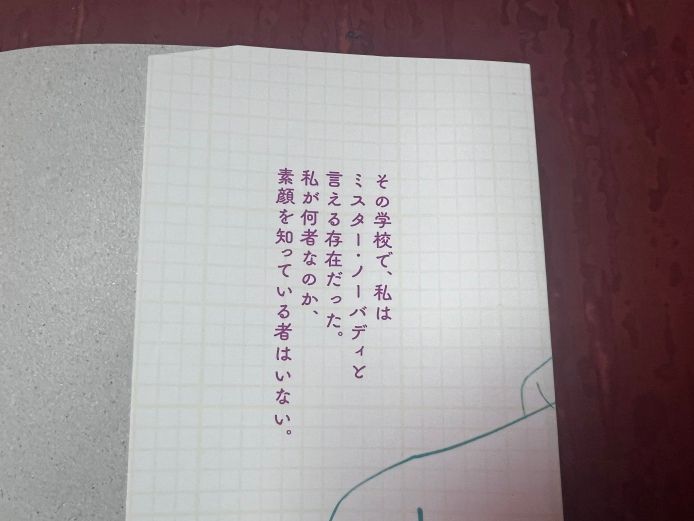 その学校で、私は
ミスター・ノーバディと
言える存在だった。
私が何者なのか、
素顔を知っている者はいない。